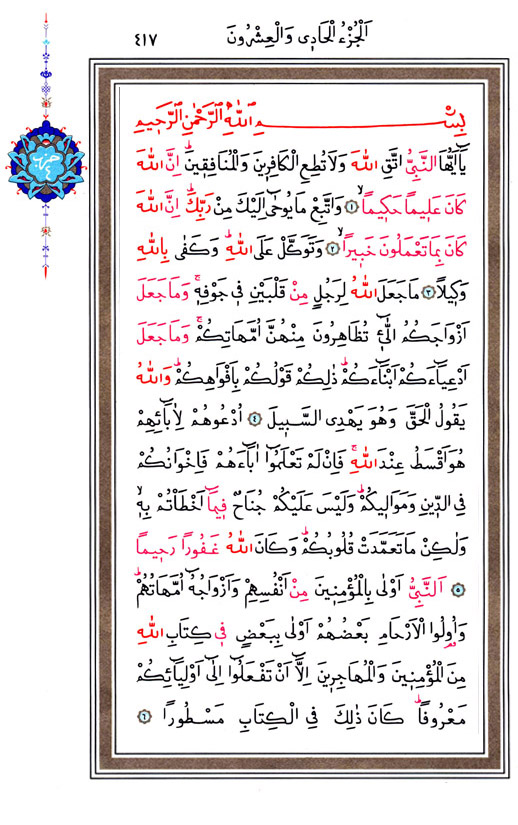 اَلْجُزْءُ الْحَادِى وَالْعِشْرُونَ
٤١٧
بِسْــــــــــــــمِ اللّٰهِ الرَّحْمٰنِ الرَّحِيمِ
يَٓا اَيُّهَا النَّبِيُّ اتَّقِ اللّٰهَ وَلَا تُطِعِ الْكَافِرِينَ وَالْمُنَافِقِينَۜ اِنَّ اللّٰهَ
كَانَ عَلِيماً حَكِيماًۙ ١ وَاتَّبِعْ مَا يُوحٰٓى اِلَيْكَ مِنْ رَبِّكَۜ اِنَّ اللّٰهَ
كَانَ بِمَا تَعْمَلُونَ خَبِيراًۙ ٢ وَتَوَكَّلْ عَلَى اللّٰهِۜ وَكَفٰى بِاللّٰهِ
وَكِيلاً ٣ مَا جَعَلَ اللّٰهُ لِرَجُلٍ مِنْ قَلْبَيْنِ فِى جَوْفِهِۚ وَمَا جَعَلَ
اَزْوَاجَكُمُ الّٰٓـِٔي تُظَاهِرُونَ مِنْهُنَّ اُمَّهَاتِكُمْۚ وَمَا جَعَلَ
اَدْعِيَٓاءَكُمْ اَبْنَٓاءَكُمْۜ ذٰلِكُمْ قَوْلُكُمْ بِاَفْوَاهِكُمْۜ وَاللّٰهُ
يَقُولُ الْحَقَّ وَهُوَ يَهْدِى السَّبِيلَ ٤ اُدْعُوهُمْ لِاٰبَٓائِهِمْ
هُوَ اَقْسَطُ عِنْدَ اللّٰهِۚ فَاِنْ لَمْ تَعْلَمُٓوا اٰبَٓاءَهُمْ فَاِخْوَانُكُمْ
فِى الدِّينِ وَمَوَالِيكُمْۜ وَلَيْسَ عَلَيْكُمْ جُنَاحٌ فِيمَٓا اَخْطَأْتُمْ بِهِۙ
وَلٰكِنْ مَا تَعَمَّدَتْ قُلُوبُكُمْۜ وَكَانَ اللّٰهُ غَفُوراً رَحِيماً
٥ اَلنَّبِيُّ اَوْلٰى بِالْمُؤْمِنِينَ مِنْ اَنْفُسِهِمْ وَاَزْوَاجُهُٓ اُمَّهَاتُهُمْۜ
وَاُو۬لُوا الْاَرْحَامِ بَعْضُهُمْ اَوْلٰى بِبَعْضٍ فِى كِتَابِ اللّٰهِ
مِنَ الْمُؤْمِنِينَ وَالْمُهَاجِرِينَ اِلَّٓا اَنْ تَفْعَلُٓوا اِلٰٓى اَوْلِيَٓائِكُمْ
مَعْرُوفاًۜ كَانَ ذٰلِكَ فِى الْكِتَابِ مَسْطُوراً ٦
حزب
٤